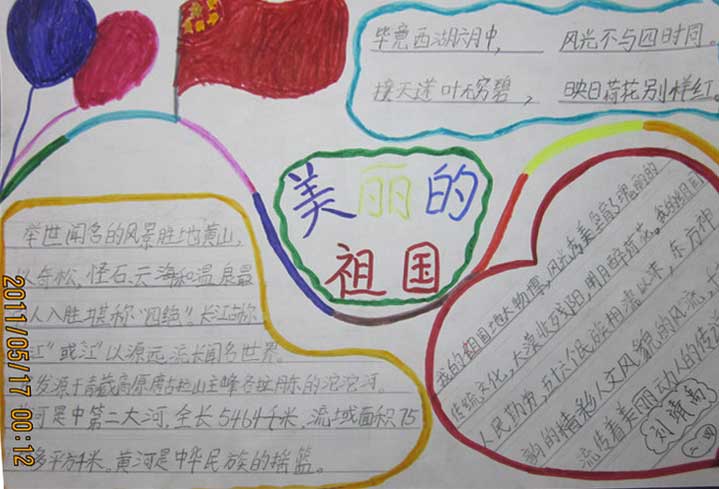 毕竟西湖六月中，风光不与四时同。
接天莲叶无穷碧，映日荷花别样红。
美丽的
祖国
举世闻名的风景胜地黄山，
以奇松，怪石、云海和温泉最
人入胜，堪称“四绝”。长江称
江”或江”以源远流长闻名世界。
发源于青藏高原唐古拉山主峰各拉丹东的沱沱河。
河是中第二大河，全长5464千米，流域面积75
多平方千米。黄河是中华民族的摇篮。
我的祖国地大物博，风光秀美，孕育了瑰丽的
传统文化，大漠收残阳，明月醉荷花。我的祖国
人民勤劳，五十六个民族相濡以沫，东方神
韵的精彩，人文风貌的风流，
流传着美丽动人的传
刘
2011/05/17 00:12